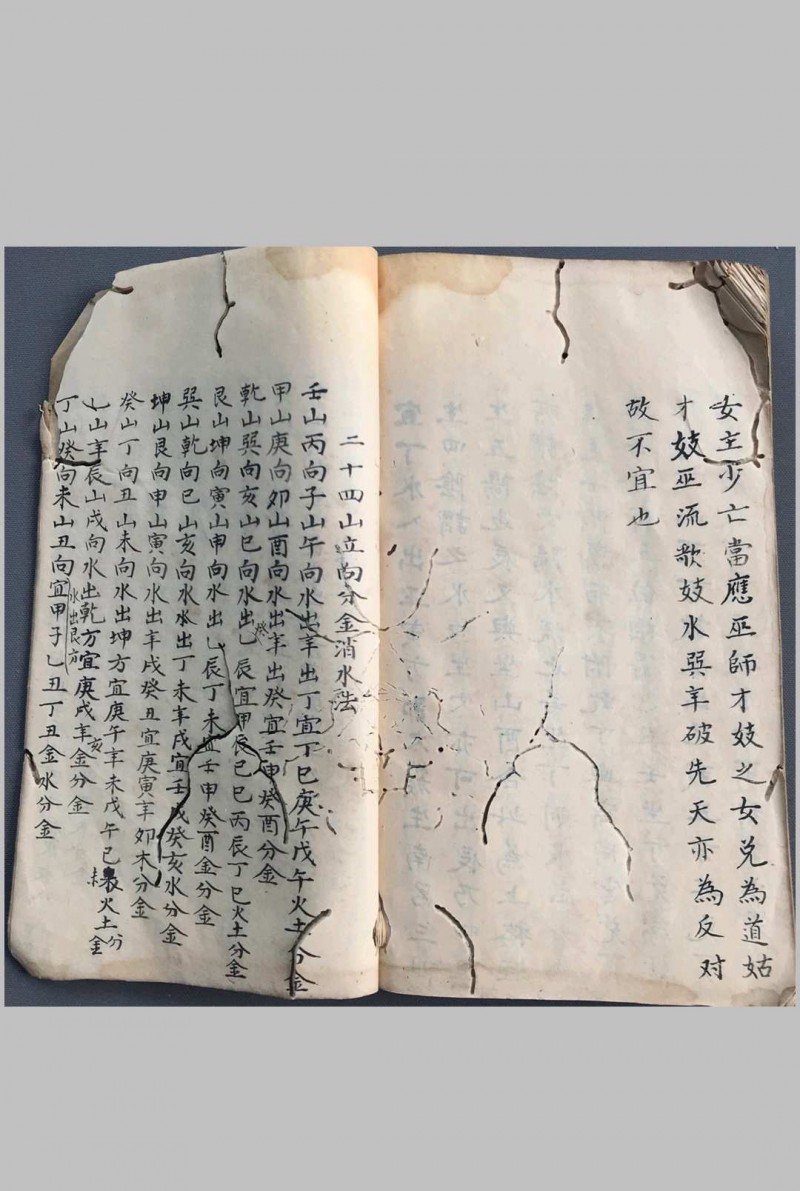 女主少亡當應巫師才妓之女兌為道姑
才妓巫流歌妓水巽辛破先天亦為反对
故不宜也
二十四山立向分金消水法
壬山丙向子山午向水出辛出丁宜丁巳庚午戊午火土分金
甲山庚向卯山酉向水出辛出癸宜壬申癸酉分金
乾山巽向亥山巳向水出乙癸辰宜甲辰乙巳丙辰丁巳火土分金
艮山坤向寅山申向水出乙辰丁未宜壬申癸酉金分金
巽山乾向巳山亥向水水出丁未辛戌宜壬戌癸亥水分金
坤山艮向申山寅向水出辛戌癸丑宜庚寅辛卯木分金
癸山丁向丑山未向水出坤方宜庚午辛未戊午巳未火土分金
乙山辛辰山戌向水出乾方宜庚戌辛亥金分金
丁山癸向未山丑向水出艮方宜甲子乙丑丁丑金水分金